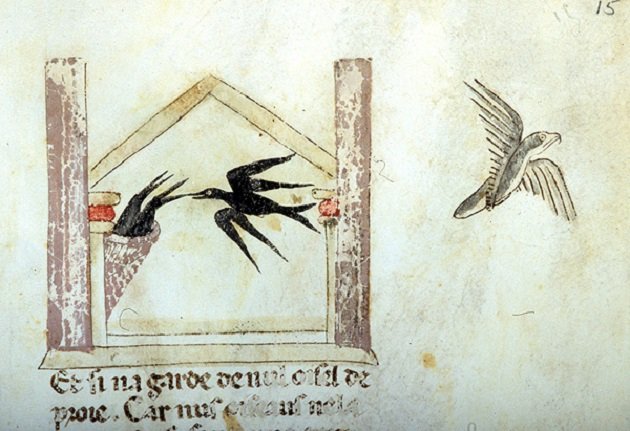 15
Et si na garde de nul oisil de
proie. Car nus oiseaus nela